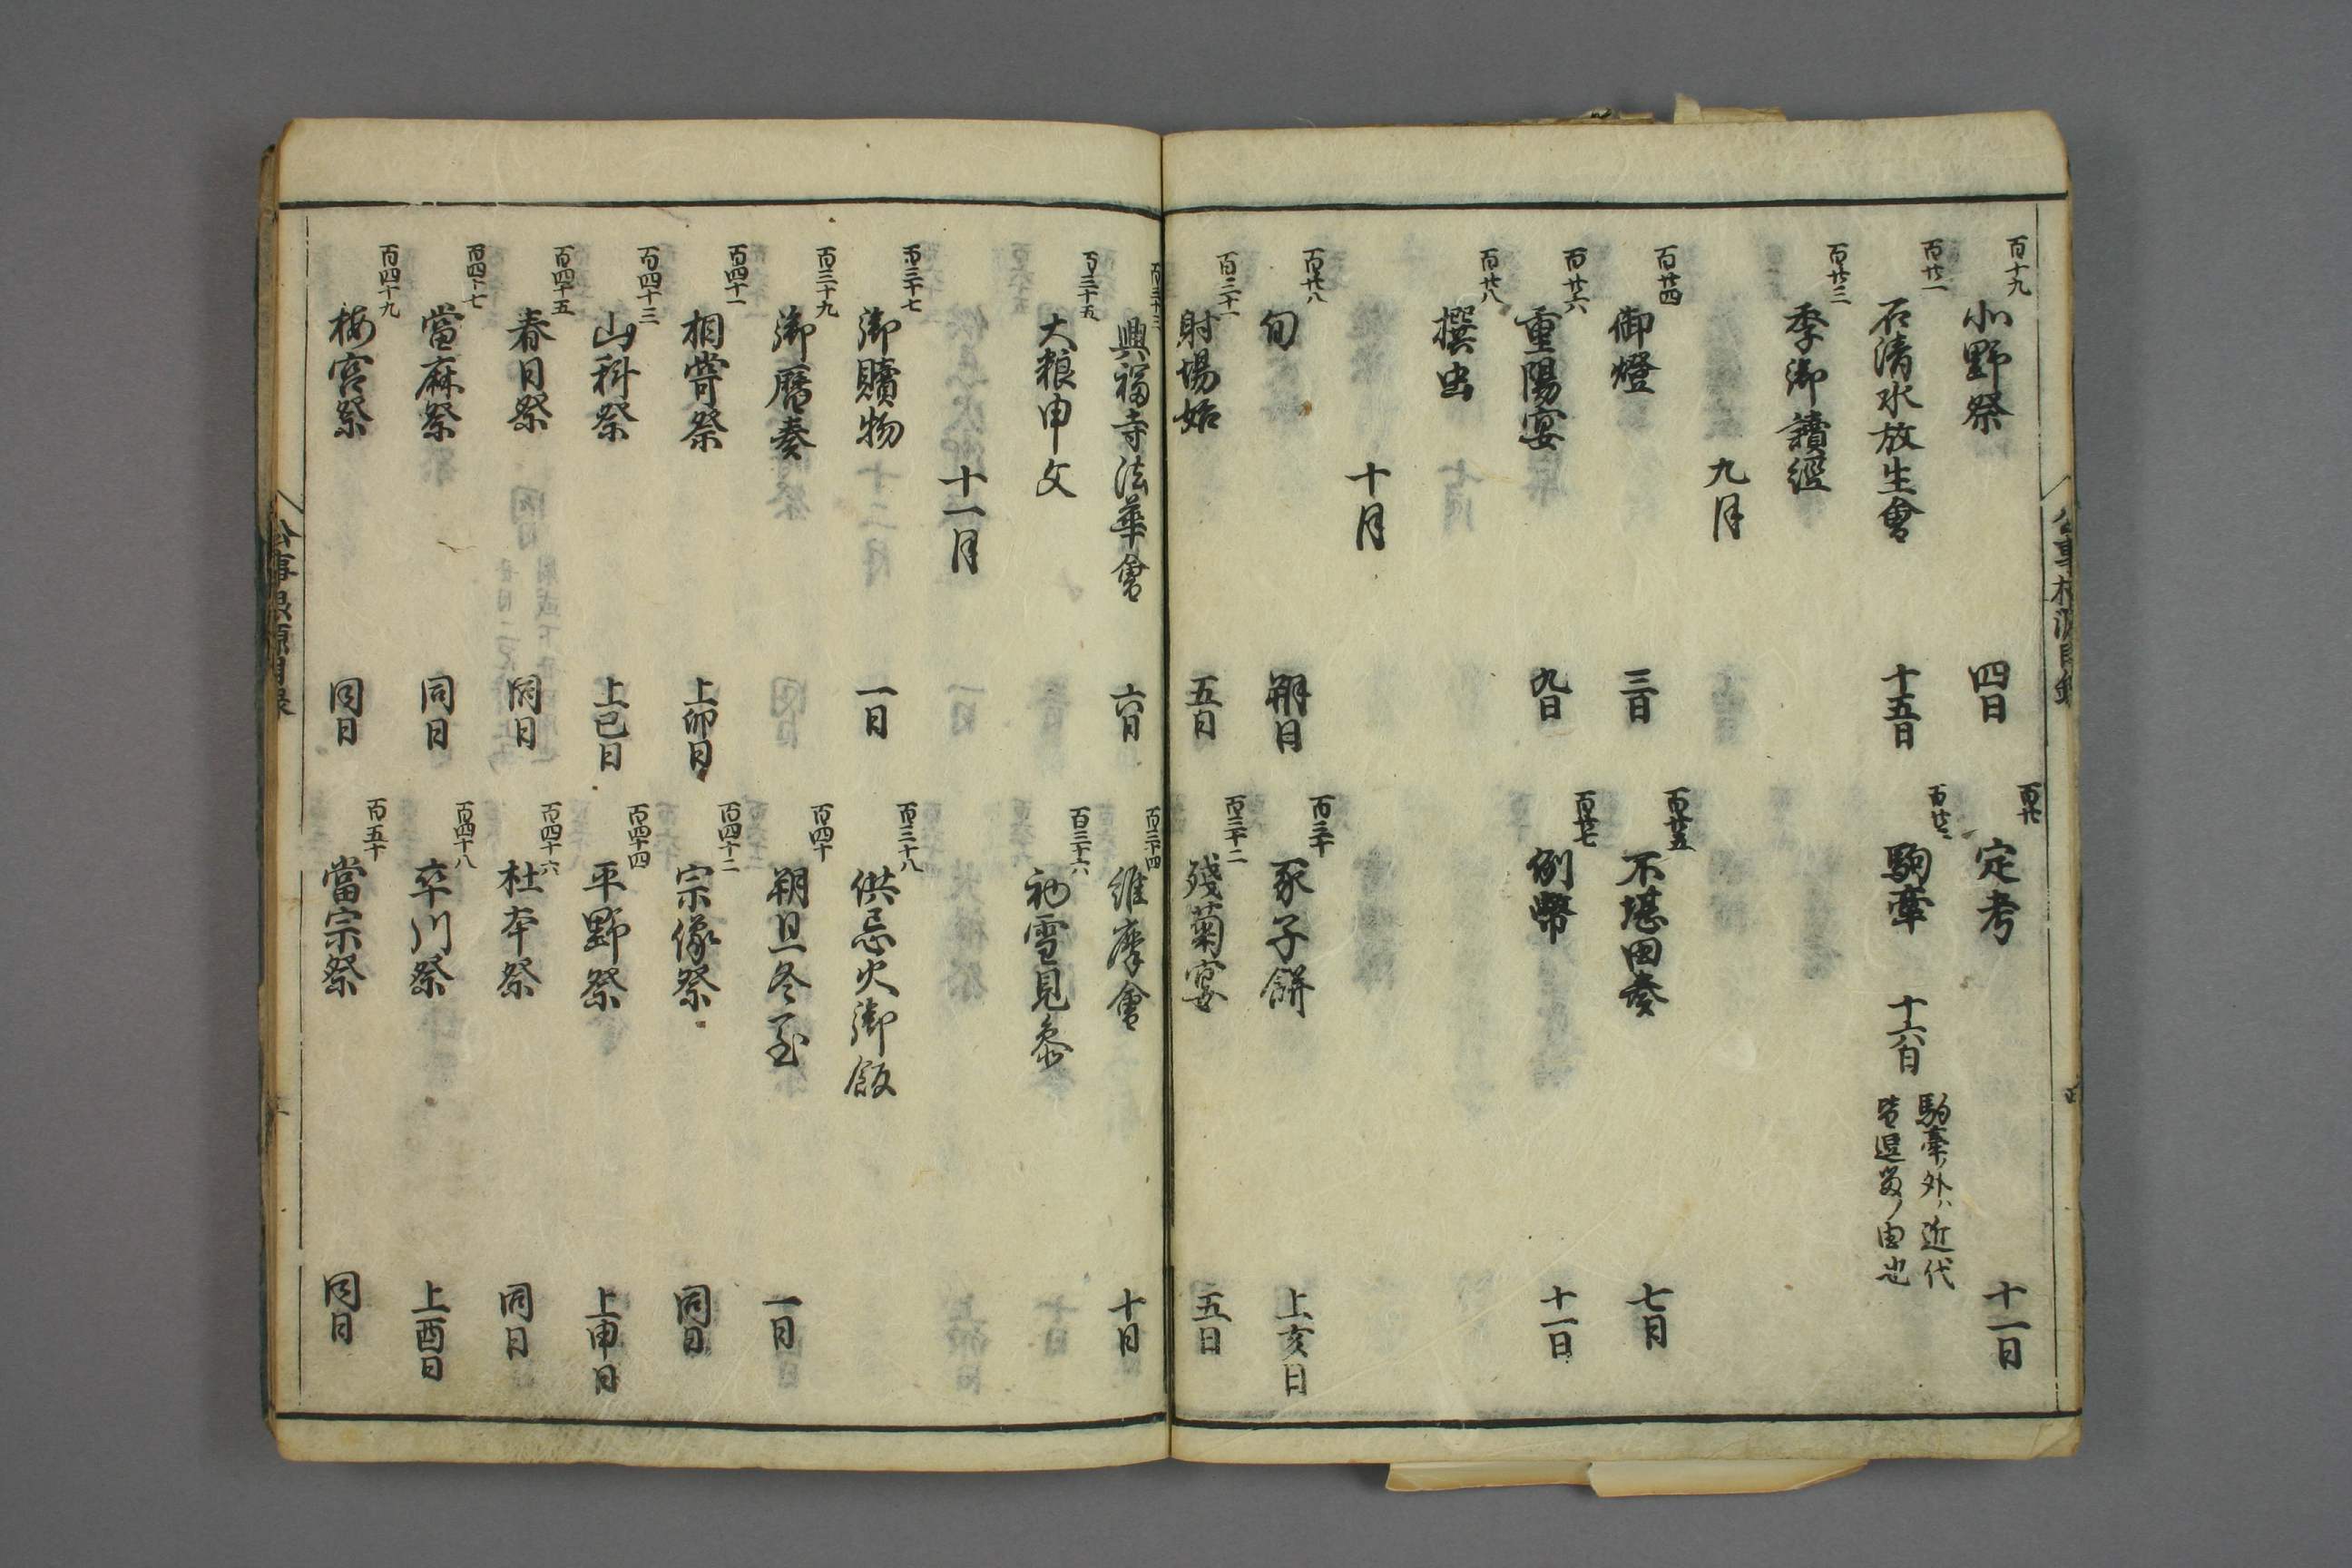 百十九 北野祭 四日 百廿 定考 十一日
百廿一 石清水放生會 十五日 百廿二 駒牽 十六日 駒牽ノ外ハ近代
皆逗畄ノ由也
百廿三 季御讀經
九月
百廿四 御燈 三日 百廿五 不堪田奏 七日
百廿六 重陽宴 九日 百廿七 例幣 十一日
百廿八 撰虫
十月
百廿八 旬 朔日 百三十 豕子餅 上亥日
百三十一 射場始 五日 百三十二 殘菊宴 五日
百三十三 興福寺法華會 六日 百三十四 維摩會 十日
百三十五 大粮申文 百三十六 初雪見參
十一月
百三十七 御贖物 一日 百三十八 供忌火御飯
百三十九 御曆奏 百四十 朔旦冬至 一日
百四十一 相嘗祭 上卯日 百四十二 宗像祭 同日
百四十三 山科祭 上巳日 百四十四 平野祭 上申日
百四十五 春日祭 同日 百四十六 杜本祭 同日
百四十七 當麻祭 同日 百四十八 率川祭 上酉日
百四十九 梅宮祭 同日 百五十 當宗祭 同日
公事根源目録